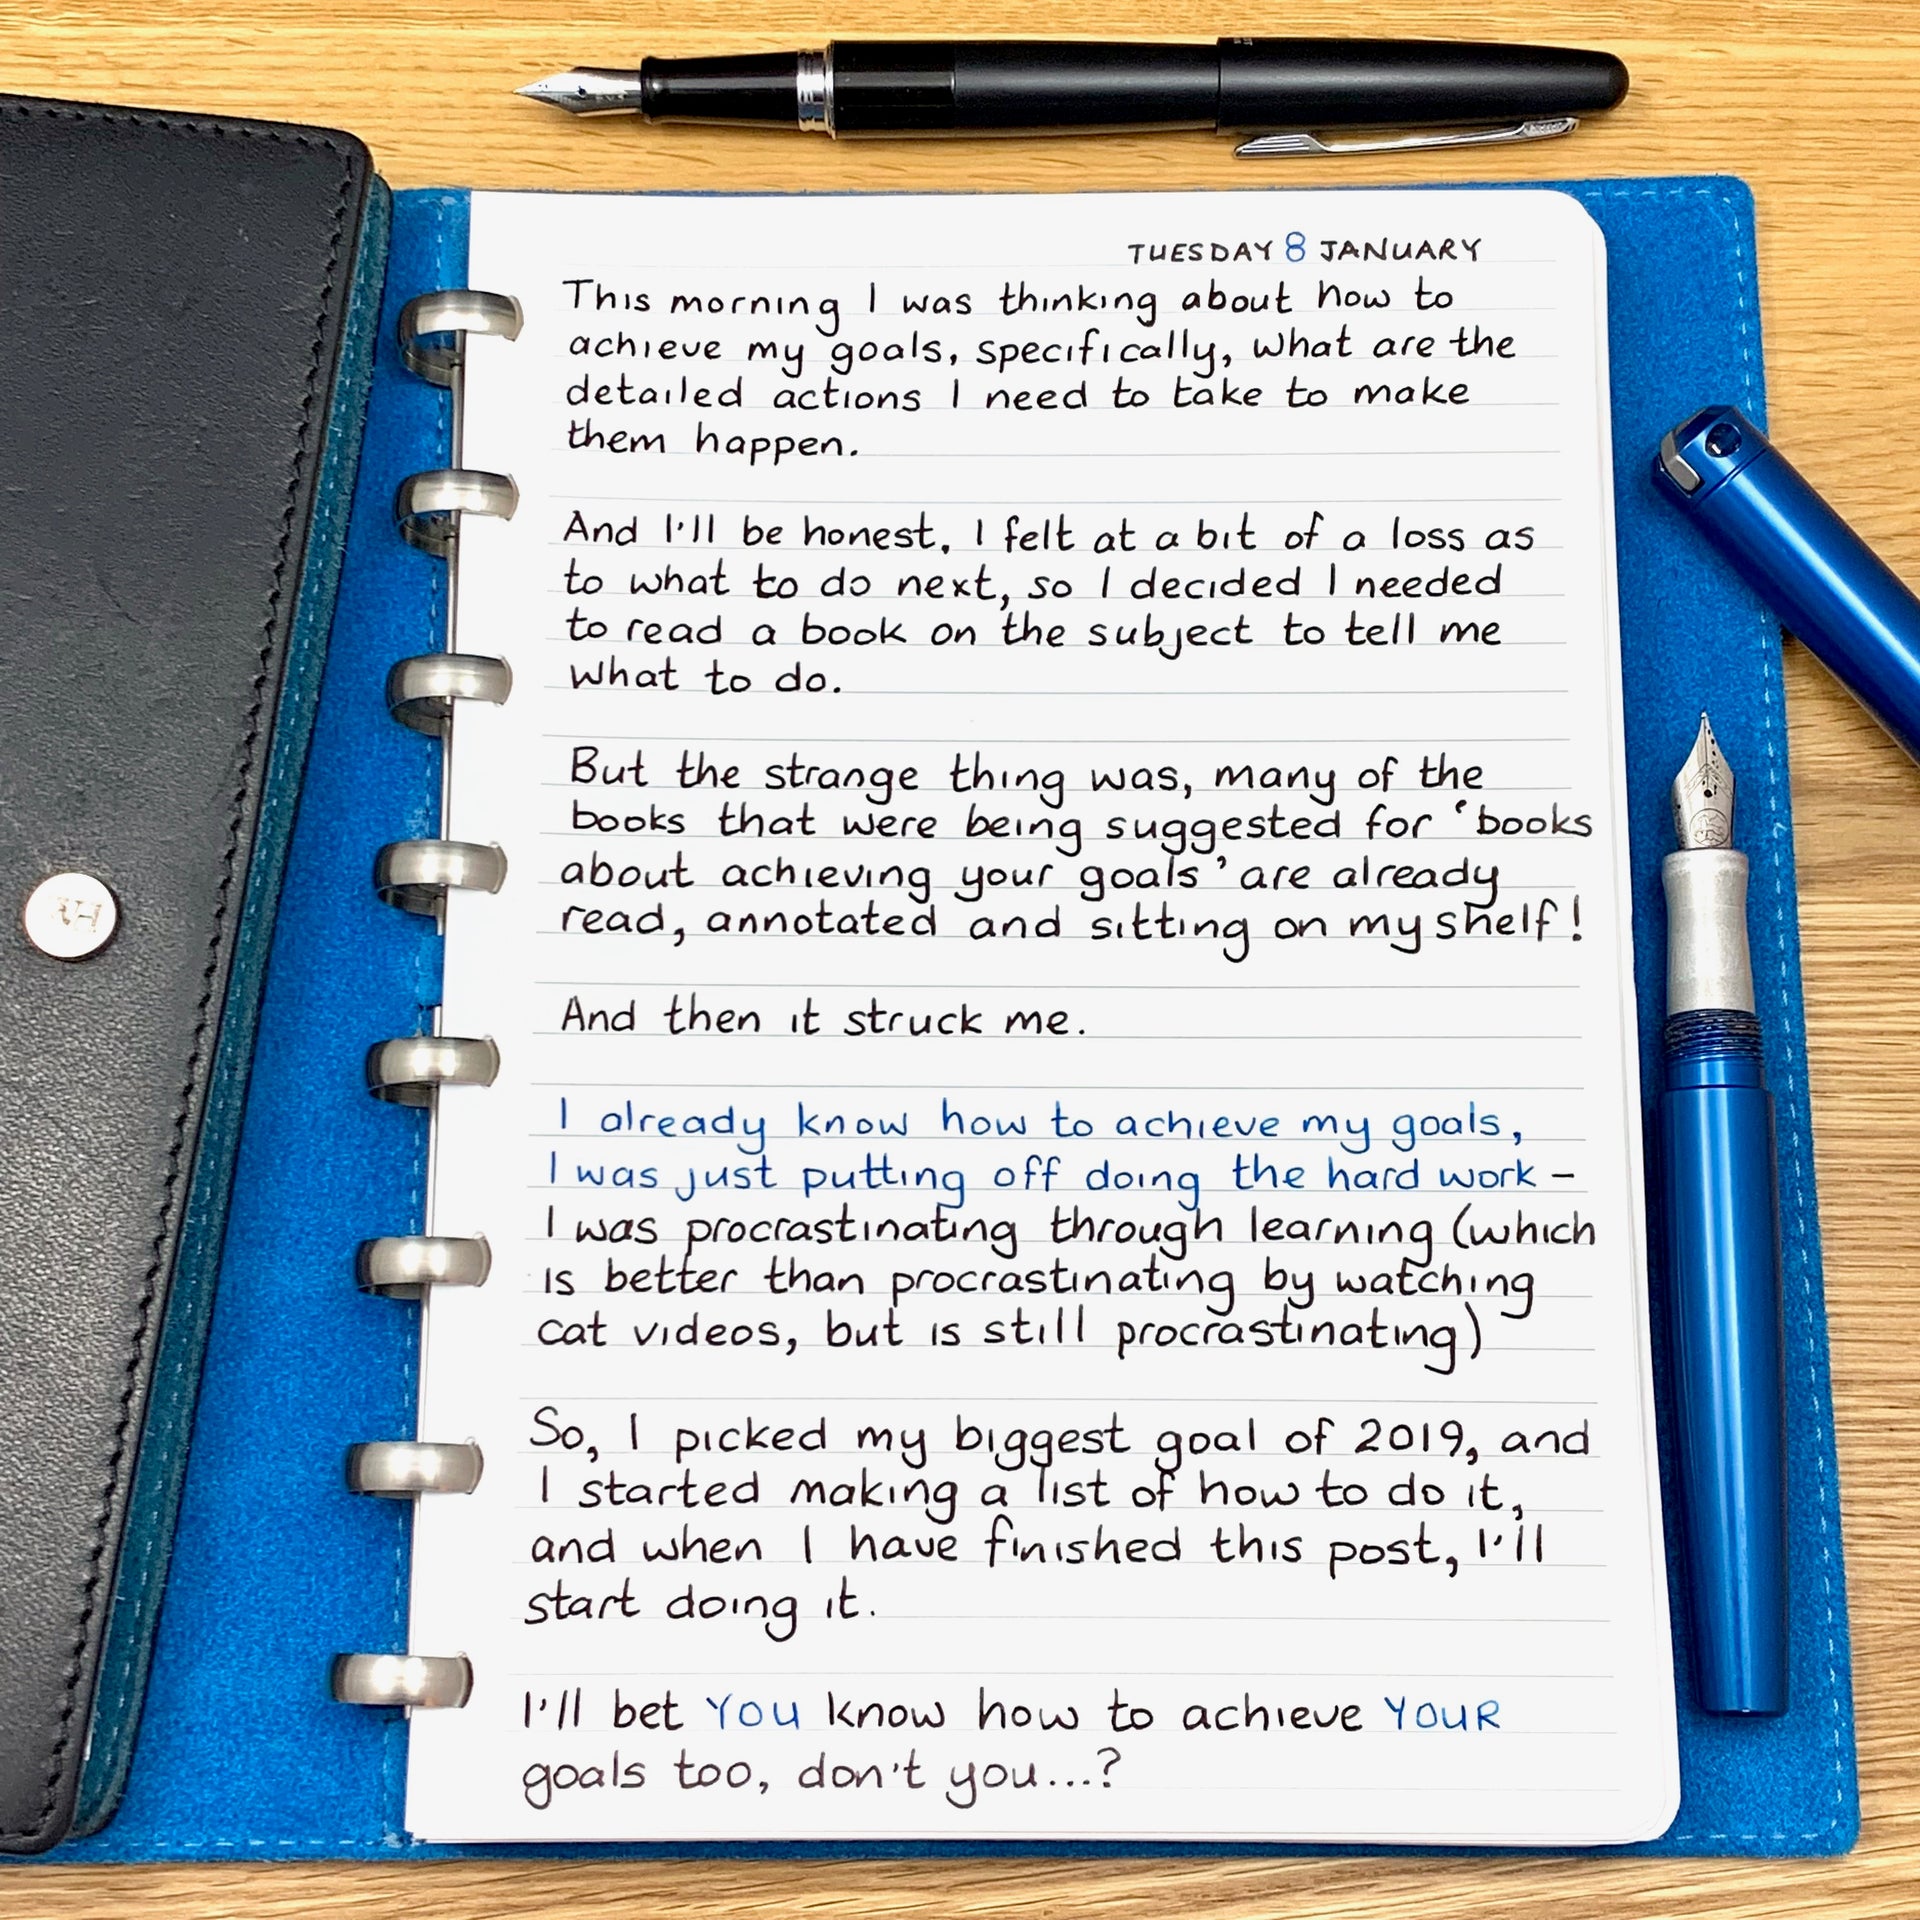 TUESDAY 8 JANUARY
This morning I was thinking about how to
achieve my goals, specifically, what are the
detailed actions I need to take to make
them happen.
And I'll be honest, I felt at a bit of a loss as
to what to do next, so I decided I needed
to read a book on the subject to tell me
what to do.
But the strange thing was, many of the
books that were being suggested for 'books
about achieving your goals' are already
read, annotated and sitting on my shelf!
And then it struck me.
I already know how to achieve my goals,
I was just putting off doing the hard work –
I was procrastinating through learning (which
is better than procrastinating by watching
cat videos, but is still procrastinating)
So, I picked my biggest goal of 2019, and
I started making a list of how to do it,
and when I have finished this post, I'll
start doing it.
I'll bet YOU know how to achieve YOUR
goals too, don't you...?